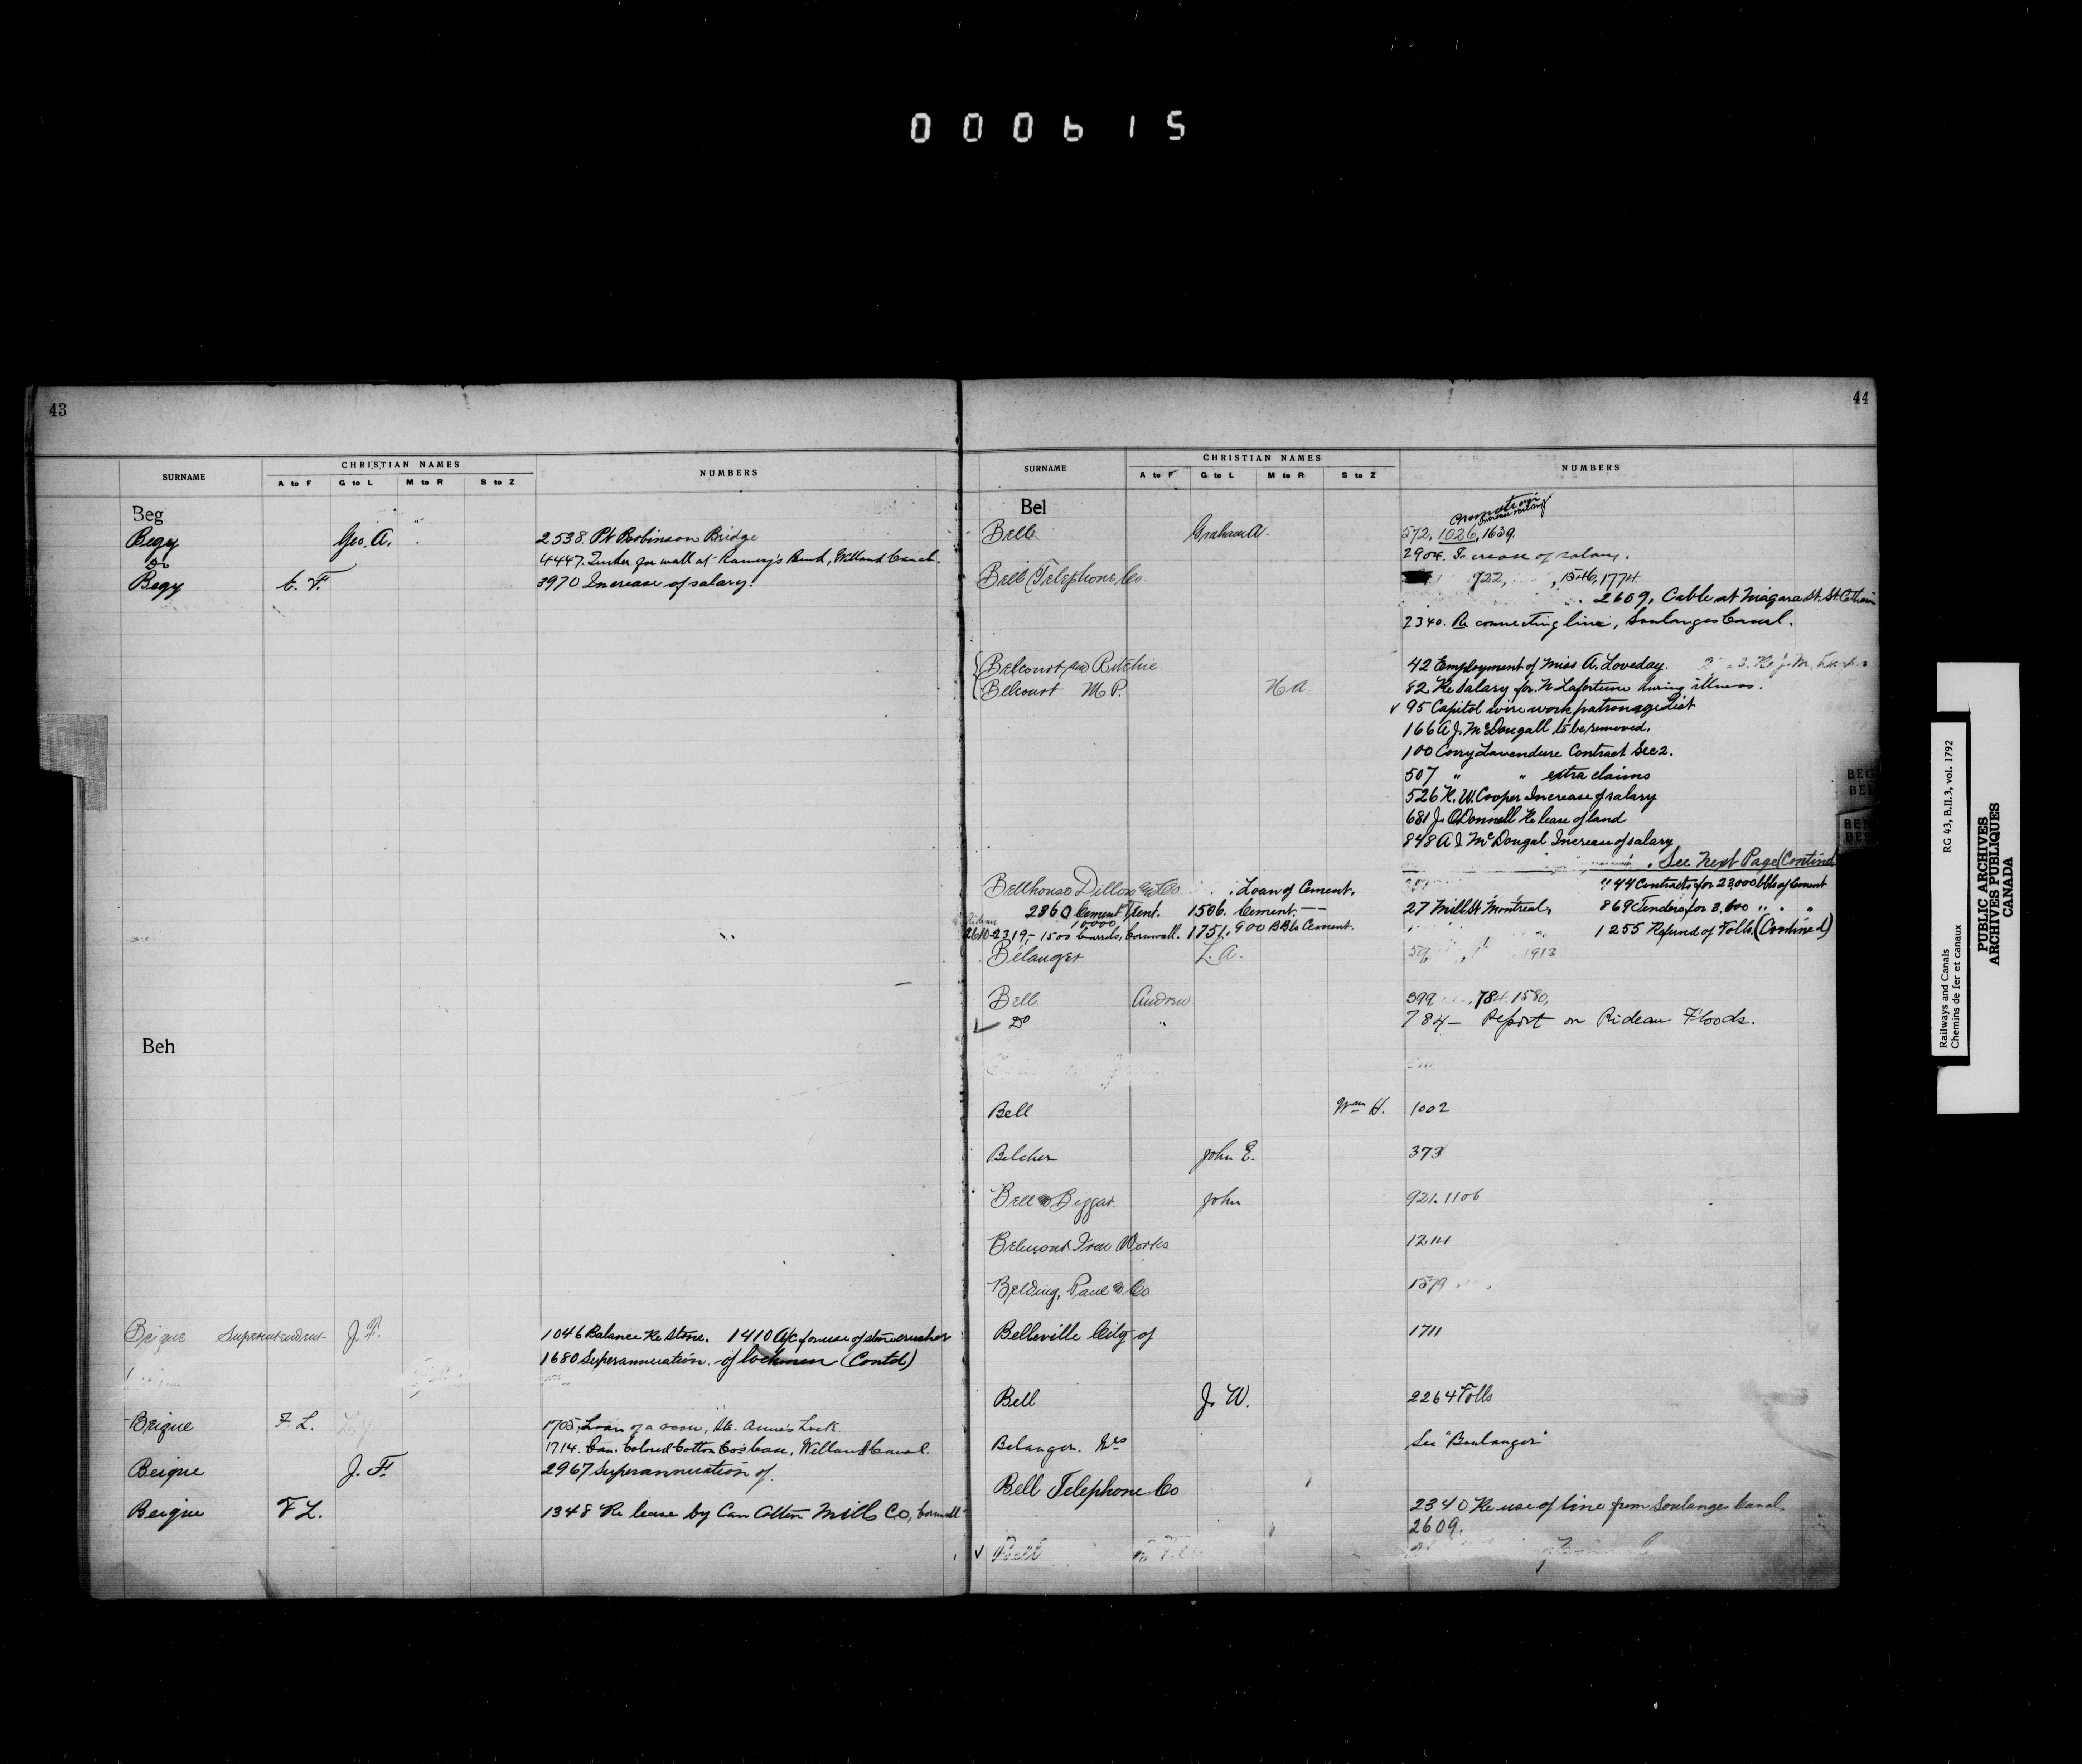 000615
43
SURNAME
CHRISTIAN NAMES
A to F G to L M to R S to Z
NUMBERS
Beg
Begy Geo. A. 2538. Pt Robinson Bridge
Do 4447. for wall at Ramey's Bend, Welland Canal.
Begy C. F. 3970 Increase of salary.
Beh
Beique Superintendent J. F. 1046 Balance Re Stone. 1410 A/c for use of stone crusher
1680 Superannuation of lockmen (Contd)
Beique F. L. 1705, Loan of a scow, Ste. Anne's Lock.
1714. Can. Colored Cotton Co's case, Welland Canal.
Beique J. F. 2967 Superannuation of.
Beique F L. 1348 Re lease by Can Cotton Mills Co, Cornwall
44
SURNAME
CHRISTIAN NAMES
A to F G to L M to R S to Z
NUMBERS
Bel
Bell Graham A. 572, 1026, 1639.
2904. Increase of salary.
Bell Telephone Co 722, 1546, 1774
2609, Cable at Niagara St. St. Catharin
2340. Re connecting line, Soulanges Canal.
Belcourt and Ritchie 42 Employment of Miss A. Loveday.
Belcourt M P. N A. 82 Re Salary for N Lafortune during illness.
✓ 95 Capitol wire work patronage List
166 A J. McDougall to be removed.
100 Corry Lavendure Contract Sec 2.
507 " " extra claims
526 H. W. Cooper Increase of salary
681 J. O'Donnell Re lease of land
848 A J McDougal Increase of salary
See Next Page (Contind
Bellhouse Dillon and Co Loan of Cement. 44 Contracts for 23,000 bbls of Cement
2860 Cement Trent. 1506. Cement. 27 Mill St Montreal, 869 Tenders for 3.600 " " "
10,000
Rideau
2610-2319,- 1500 barrels, Cornwall. 1751. 900 BBls Cement. 1255 Refund of Tolls. (Contined)
Bélanger L. A. 1913
Bell Andrew 399 784. 1580,
✓ Do " 784 - Report on Rideau Floods.
Bell Wm H. 1002
Belcher John E. 373
Bell & Biggar. John 921. 1106
Belmont Iron Works 1214
Belding, Paul & Co 1579
Belleville City of 1711
Bell J. W. 2264 Tolls
Belanger. See "Boulanger"
Bell Telephone Co 2340 Re use of line from Soulanges Canal
2609.
✓ Bell
BEG
BEL
BEN
BES
Railways and Canals RG 43, B.II.3, vol. 1792
Chemins de fer et canaux
PUBLIC ARCHIVES
ARCHIVES PUBLIQUES
CANADA